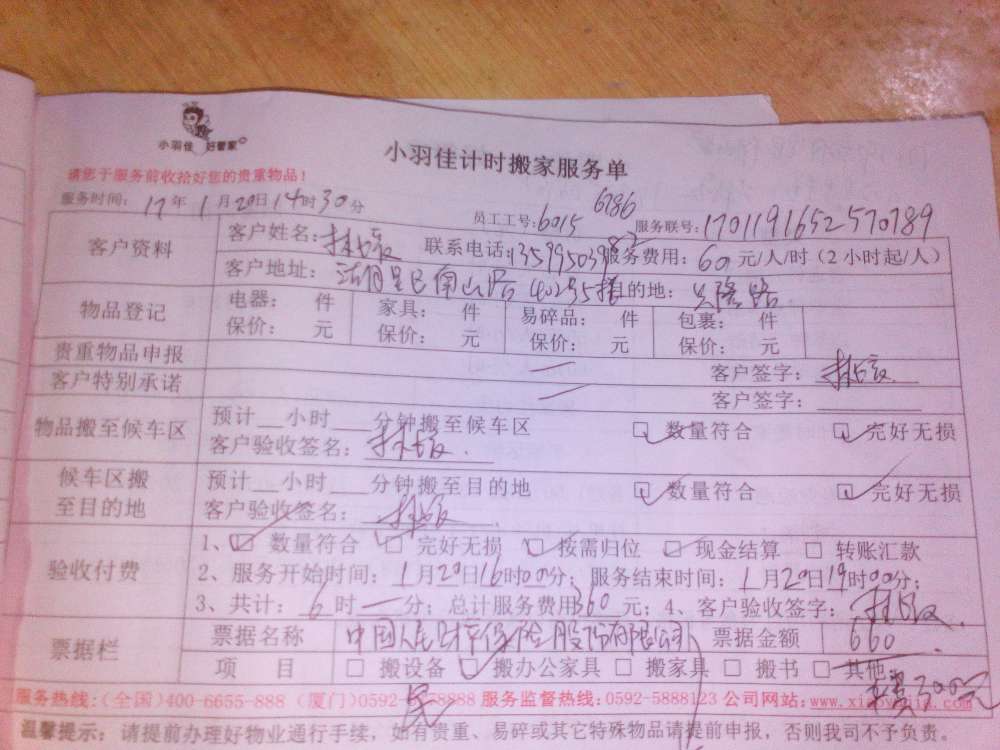 小羽佳 好管家
小羽佳计时搬家服务单
请您于服务前收拾好您的贵重物品！
服务时间：17年1月20日14时30分 员工工号：6015 6786 服务联号：1701191652570789
客户资料 客户姓名：林 联系电话：服务费用：60元/人/时（2小时起/人）
客户地址：目的地：兴隆路
物品登记 电器： 件 家具： 件 易碎品： 件 包裹： 件
保价： 元 保价： 元 保价： 元 保价： 元
贵重物品申报 客户签字：林
客户特别承诺 客户签字：
物品搬至候车区 预计__小时___分钟搬至候车区 □ 数量符合 □ 完好无损
客户验收签名：林
候车区搬至目的地 预计__小时___分钟搬至目的地 □ 数量符合 □ 完好无损
客户验收签名：林
验收付费 1、□ 数量符合 □ 完好无损 □ 按需归位 □ 现金结算 □ 转账汇款
2、服务开始时间：1月20日16时00分；服务结束时间：1月20日19时00分；
3、共计：6时一分；总计服务费用360元；4、客户验收签字：林
票据栏 票据名称 中国人民财产保险股份有限公司 票据金额 660
项 目 □ 搬设备 □ 搬办公家具 □ 搬家具 □ 搬书 □ 其他
300元
服务热线:(全国)400-6655-888 (厦门)0592- 服务监督热线:0592-5888123 公司网站:
温馨提示：请提前办理好物业通行手续，如有贵重、易碎或其它特殊物品请提前申报，否则我司不予负责。